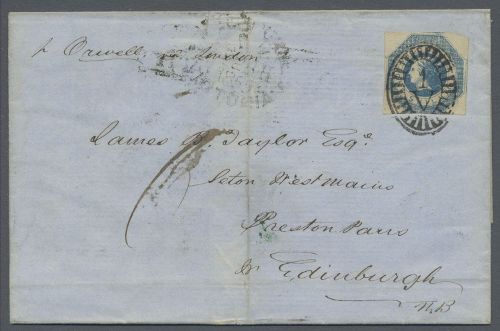 p Orwell via London
VICTORIA
1
James B. Taylor Esqr
Seton West Mains
Preston Pans
Nr Edinburgh
N.B